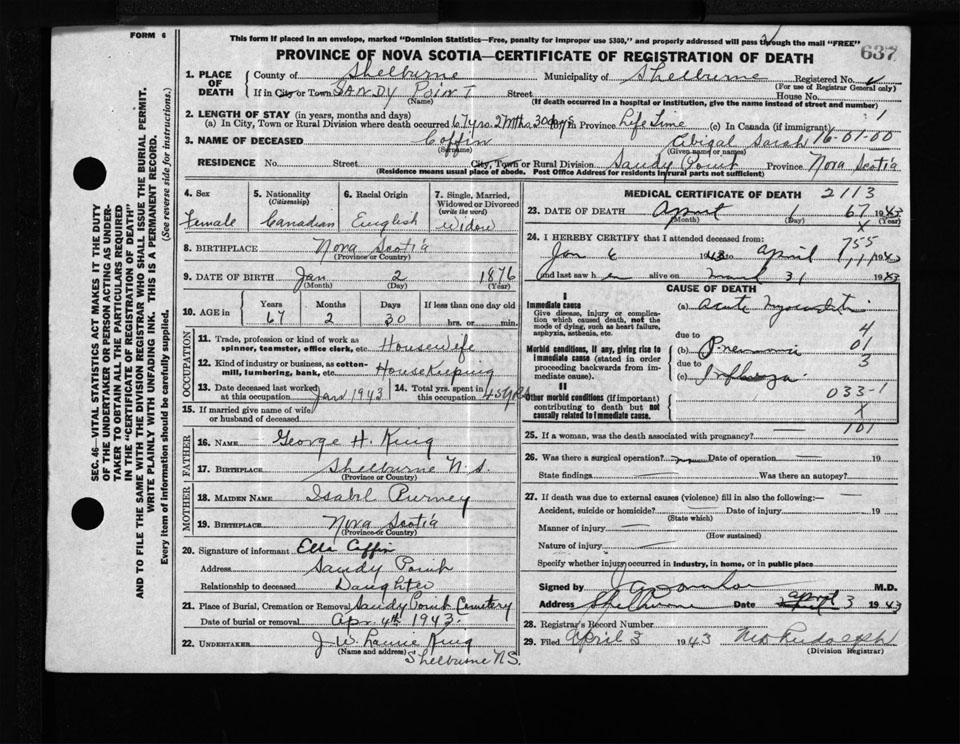 FORM 6
This form if placed in an envelope, marked "Dominion Statistics—Free, penalty for improper use $300," and properly addressed will pass through the mail "FREE"
PROVINCE OF NOVA SCOTIA—CERTIFICATE OF REGISTRATION OF DEATH
637
1. PLACE OF DEATH
County of Shelburne Municipality of Shelburne Registered No.
(For use of Registrar General only)
If in City or Town SANDY POINT Street House No.
(Name) (If death occurred in a hospital or institution, give the name instead of street and number)
2. LENGTH OF STAY (in years, months and days)
(a) In City, Town or Rural Division where death occurred 67 yrs. 2 mths, 30 days (b) In Province Life Time (c) In Canada (if immigrant) 1
3. NAME OF DECEASED Coffin Abigal Sarah 16-01-00
(Surname) (Given name or names)
RESIDENCE No. Street City, Town or Rural Division Sandy Point Province Nova Scotia
(Residence means usual place of abode. Post Office Address for residents in rural parts not sufficient)
4. Sex
Female
5. Nationality
(Citizenship)
Canadian
6. Racial Origin
English
7. Single, Married, Widowed or Divorced
(write the word)
Widow
8. BIRTHPLACE Nova Scotia
(Province or Country)
9. DATE OF BIRTH Jan 2 1876
(Month) (Day) (Year)
10. AGE in
Years Months Days If less than one day old
67 2 30 hrs. or min.
OCCUPATION
11. Trade, profession or kind of work as spinner, teamster, office clerk, etc. Housewife
12. Kind of industry or business, as cotton-mill, lumbering, bank, etc. Housekeeping
13. Date deceased last worked at this occupation Jan 1943
14. Total yrs. spent in this occupation 45 yrs
15. If married give name of wife or husband of deceased
FATHER
16. NAME George H. King
17. BIRTHPLACE Shelburne N.S.
(Province or Country)
MOTHER
18. MAIDEN NAME Isabil Purney
19. BIRTHPLACE Nova Scotia
(Province or Country)
20. Signature of informant Coffin
Address Sandy Point
Relationship to deceased Daughter
21. Place of Burial, Cremation or Removal Sandy Point Cemetery
Date of burial or removal Apr 4th 1943.
22. UNDERTAKER J. W. King
(Name and address)
Shelburne N.S.
MEDICAL CERTIFICATE OF DEATH 2113
23. DATE OF DEATH April 1 67 1943
(Month) (Day) (Year)
X
24. I HEREBY CERTIFY that I attended deceased from:
755
Jan 6 1943 to April 1943
and last saw her alive on March 31 1943
CAUSE OF DEATH
I
Immediate cause
Give disease, injury or complication which caused death, not the mode of dying, such as heart failure, asphyxia, asthenia, etc.
(a) Acute
due to 4
Morbid conditions, if any, giving rise to immediate cause (stated in order proceeding backwards from immediate cause).
(b) 01
due to 3
(c) Influenza
II
Other morbid conditions (if important) contributing to death but not causally related to immediate cause.
033-1
X
101
25. If a woman, was the death associated with pregnancy?
26. Was there a surgical operation? Date of operation 19
State findings Was there an autopsy?
27. If death was due to external causes (violence) fill in also the following:—
Accident, suicide or homicide? Date of injury 19
(State which)
Manner of injury
(How sustained)
Nature of injury
Specify whether injury occurred in industry, in home, or in public place
Signed by M.D.
Address Shelburne Date april 3 1943
28. Registrar's Record Number
29. Filed April 3 1943 Rudolph
(Division Registrar)
SEC. 46—VITAL STATISTICS ACT MAKES IT THE DUTY
OF THE UNDERTAKER OR PERSON ACTING AS UNDER-
TAKER TO OBTAIN ALL THE PARTICULARS REQUIRED
IN THE "CERTIFICATE OF REGISTRATION OF DEATH"
AND TO FILE THE SAME WITH THE DIVISION REGISTRAR WHO SHALL ISSUE THE BURIAL PERMIT.
WRITE PLAINLY WITH UNFADING INK. THIS IS A PERMANENT RECORD.
Every item of information should be carefully supplied. (See reverse side for instructions.)